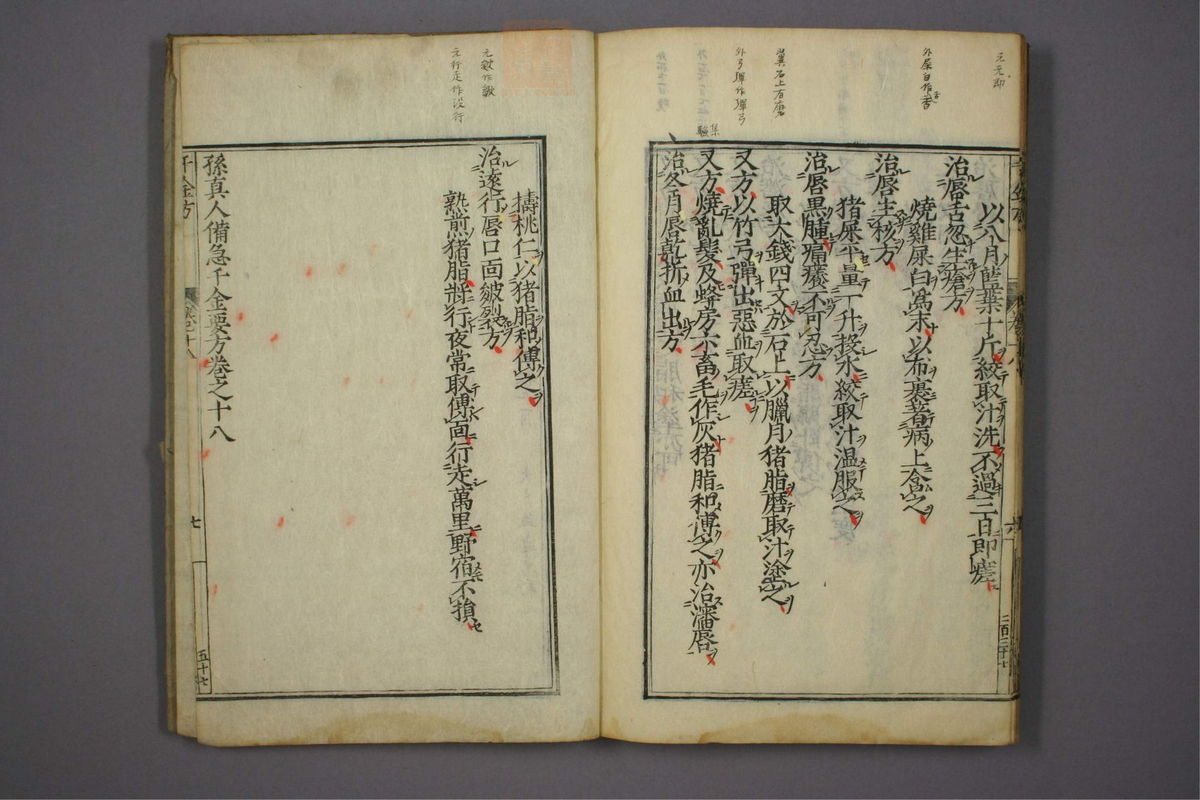 以八月藍葉十斤絞取汁洗不過三日即瘥
治脣舌忽生瘡方
燒雞屎白為末以布裹著病上含之
治脣生核方
猪屎平量一升投水絞取汁温服之
治脣黒腫痛癢不可忍方
取大錢四文於石上以臘月猪脂磨取汁塗之
又方以竹弓彈出惡血取瘥
又方燒亂髮及蜂房六畜毛作灰猪脂和傅之亦治瀋脣
治冬月脣乾拆血出方
擣桃仁以猪脂和傅之
治遠行脣口面皴裂方
熟煎猪脂將行夜常取傅面行走萬里野宿不損
孫真人備急千金要方卷之十八
千金方
七
五十七
外屎白作香
翼石上有磨
外弓彈作彈弓
元皴作皺
元行走作沒行